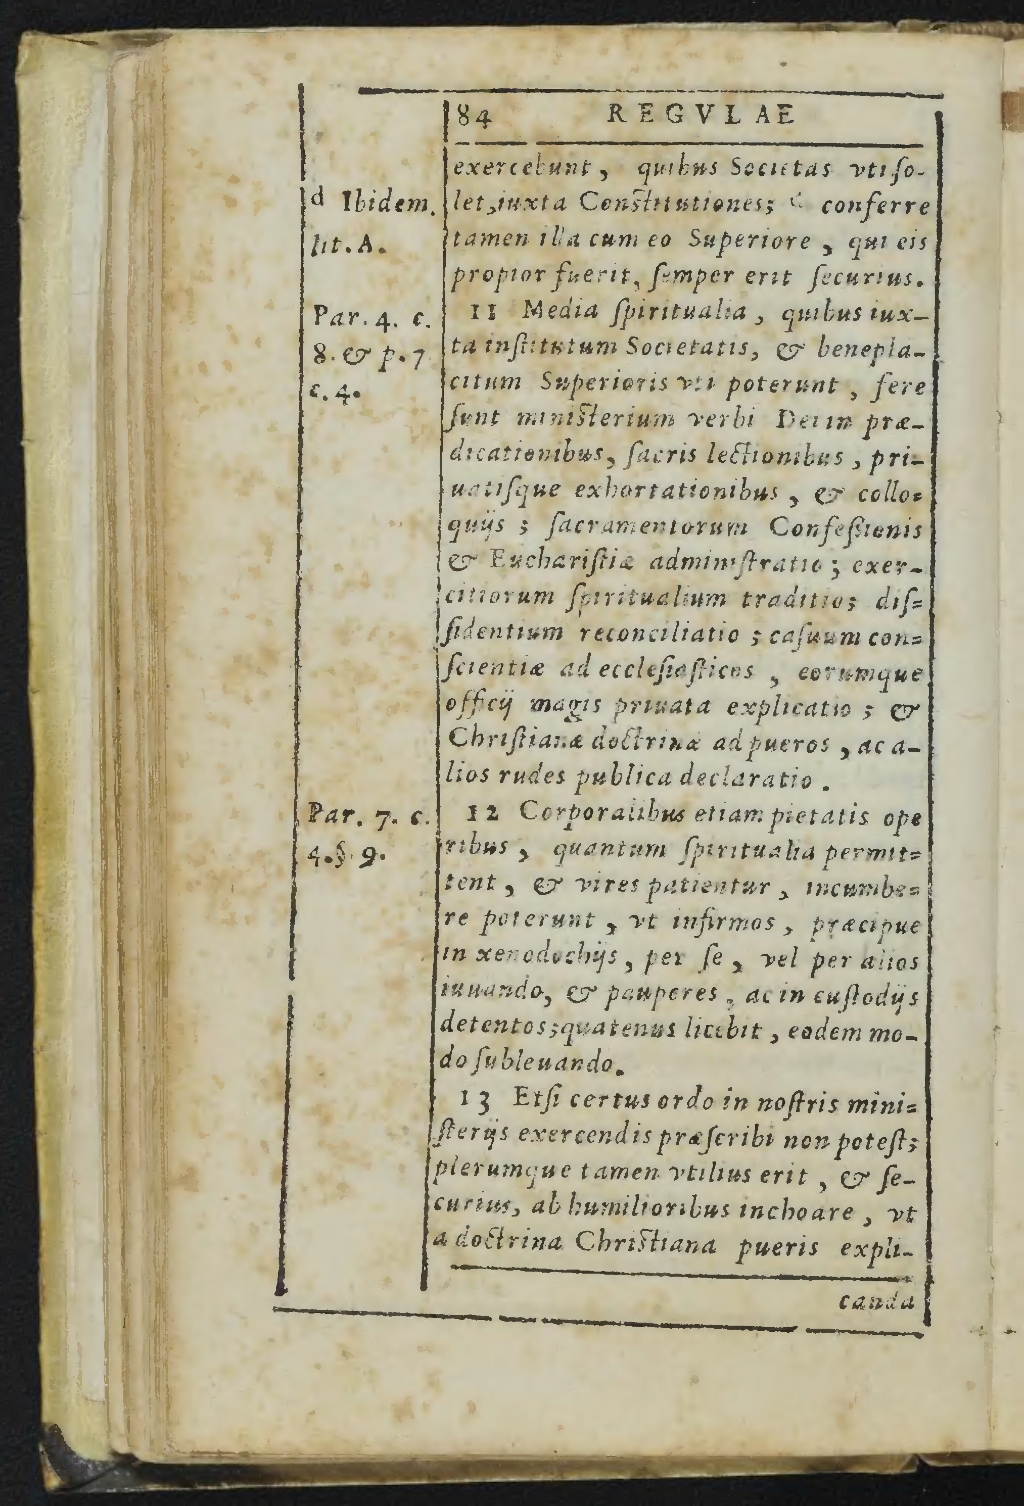 84 REGVLAE
exercebunt, quibus Societas vti so-
d Ibidem.
lit. A.
let, iuxta Constitutiones; d conferre
tamen illa cum eo Superiore, qui eis
propior fuerit, semper erit securius.
Par. 4. c.
8. & p. 7
c. 4.
11 Media spiritualia, quibus iux-
ta institutum Societatis, & benepla-
citum Superioris vti poterunt, fere
sunt ministerium verbi Dei in præ-
dicationibus, sacris lectionibus, pri-
uatisque exhortationibus, & collo=
quijs; sacramentorum Confessionis
& Eucharistiæ administratio; exer-
citiorum spiritualium traditio; dis=
sidentium reconciliatio; casuum con=
scientiæ ad ecclesiasticos, eorumque
officij magis priuata explicatio; &
Christianæ doctrinæ ad pueros, ac a-
lios rudes publica declaratio.
Par. 7. c.
4. §. 9.
12 Corporalibus etiam pietatis ope
ribus, quantum spiritualia permit=
tent, & vires patientur, incumbe=
re poterunt, vt infirmos, præcipue
in xenodochijs, per se, vel per alios
iuuando, & pauperes, ac in custodijs
detentos; quatenus licebit, eodem mo-
do subleuando.
13 Etsi certus ordo in nostris mini=
sterijs exercendis præscribi non potest;
plerumque tamen vtilius erit, & se-
curius, ab humilioribus inchoare, vt
a doctrina Christiana pueris expli-
canda